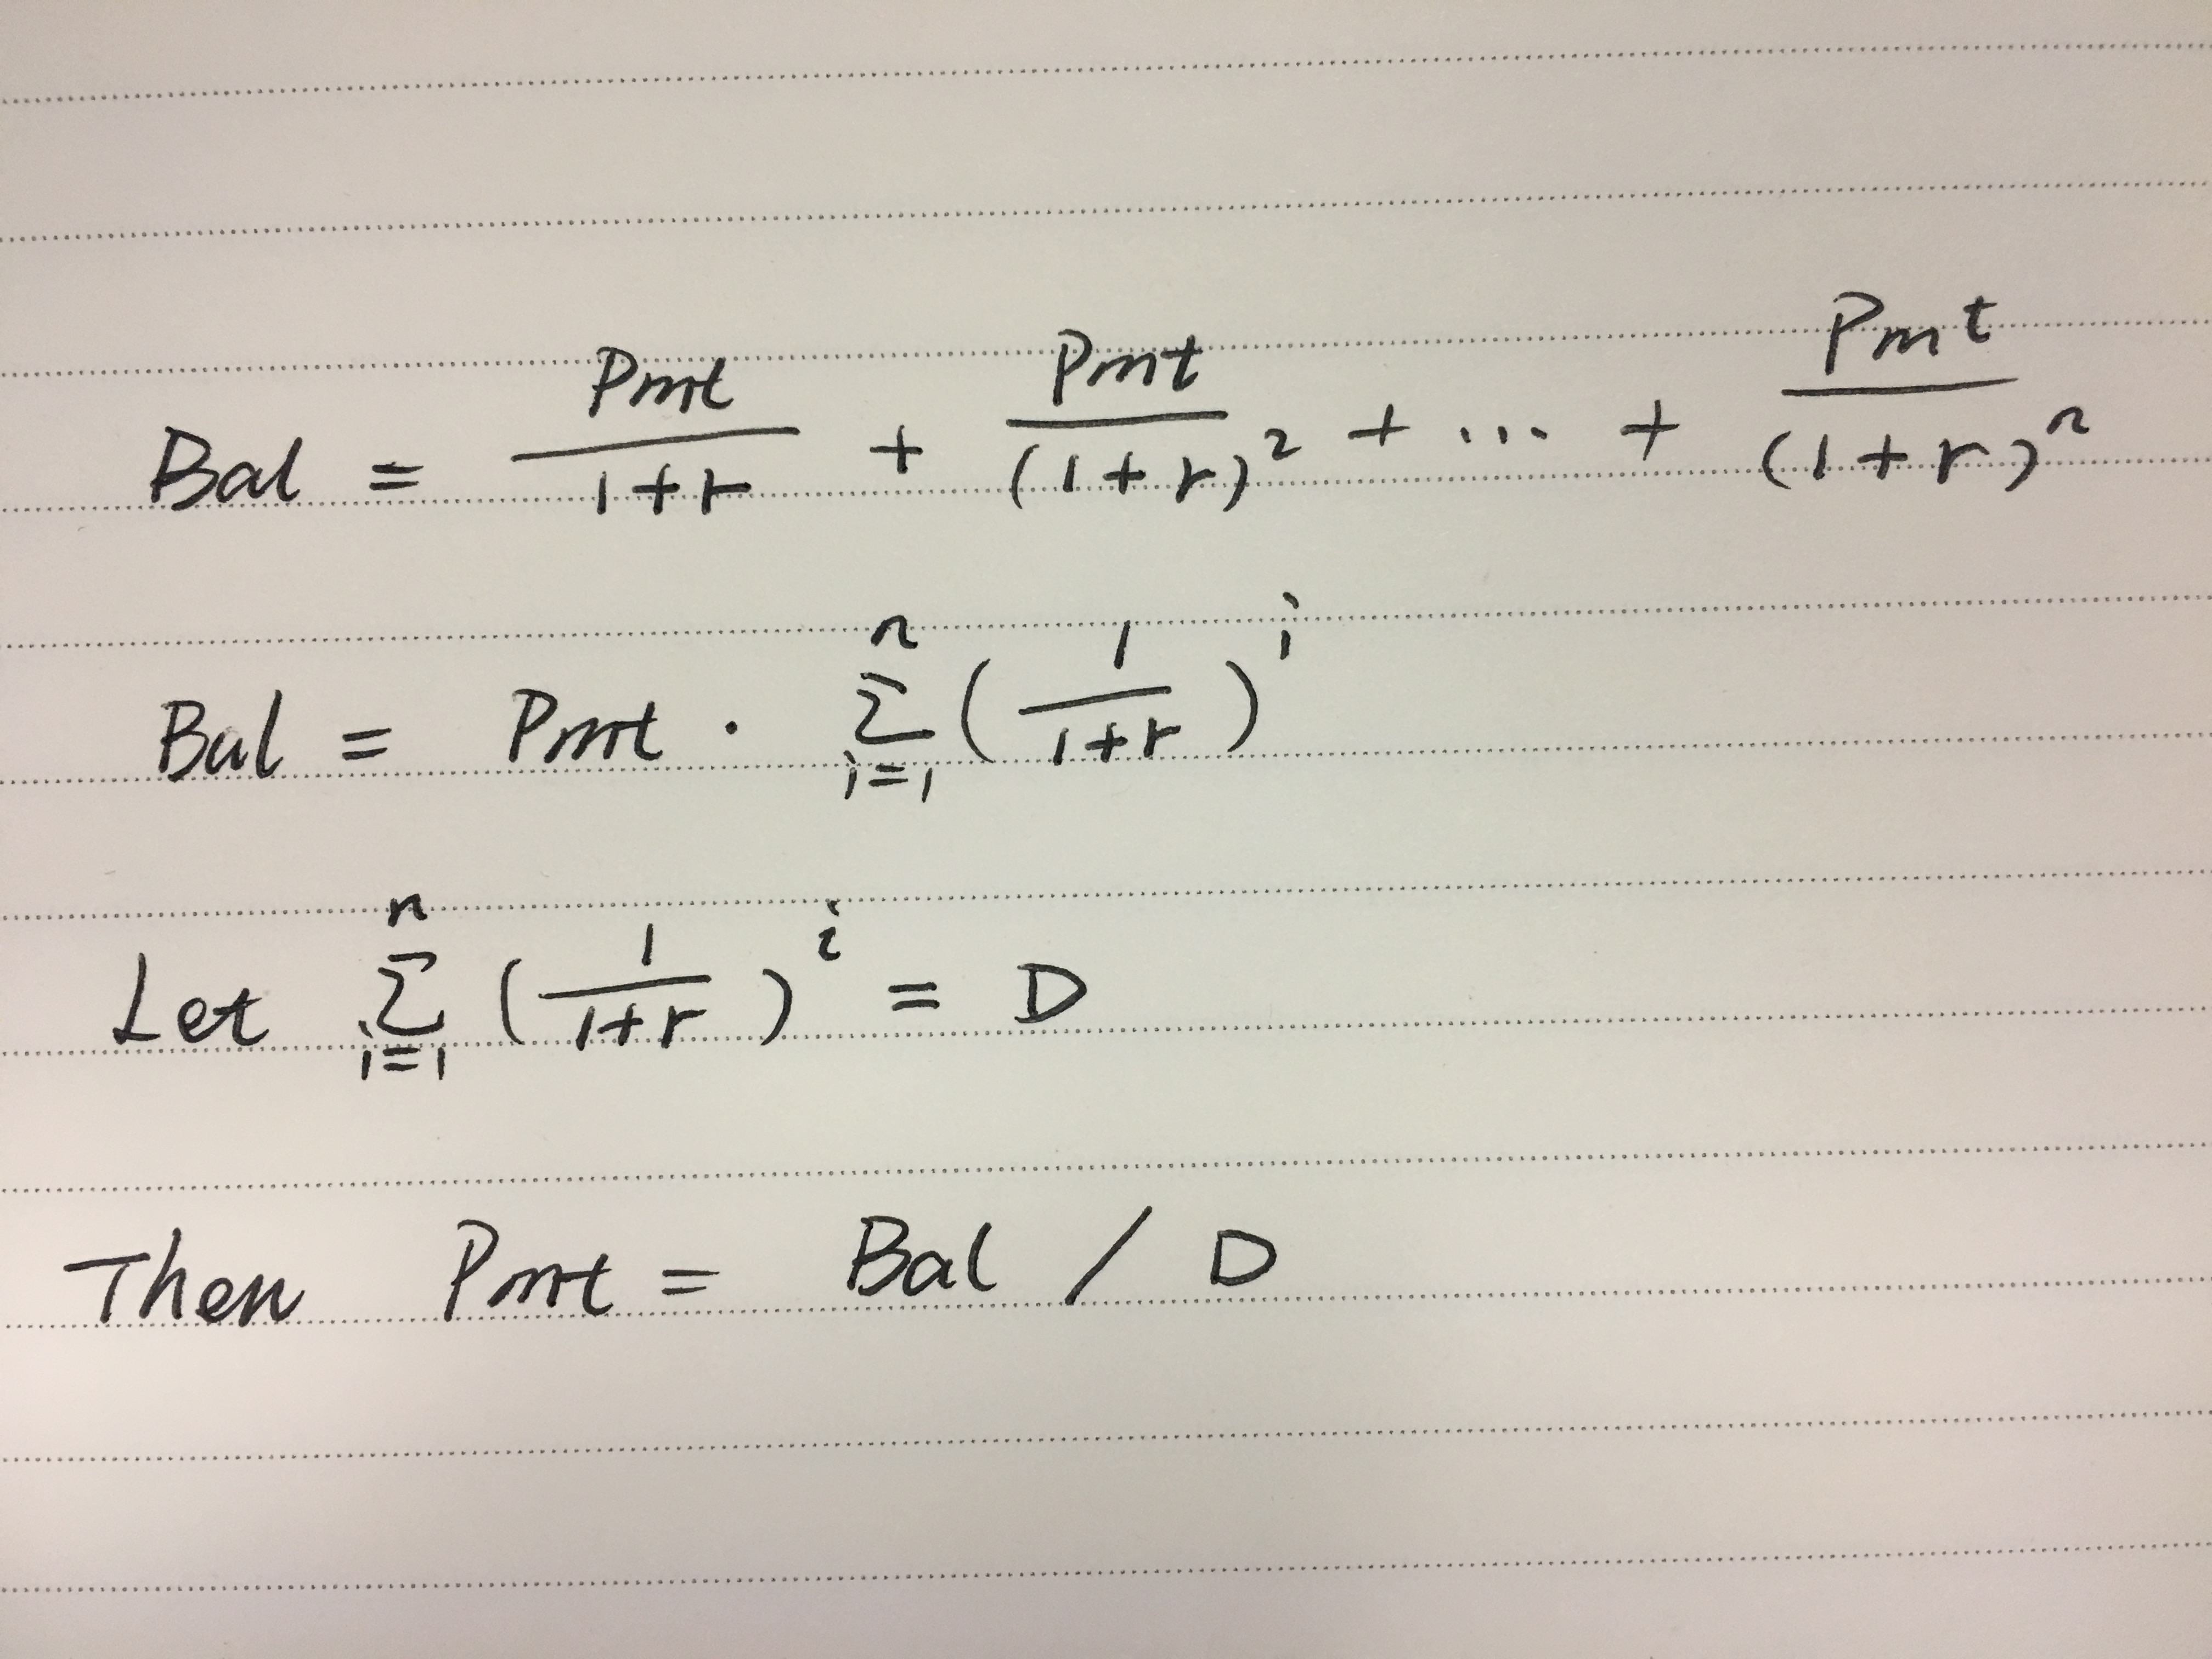 Bal = Pmt/(1+r) + Pmt/(1+r)² + ... + Pmt/(1+r)ⁿ
Bal = Pmt · Σ_{i=1}^{n} (1/(1+r))^i
Let Σ_{i=1}^{n} (1/(1+r))^i = D
Then Pmt = Bal / D